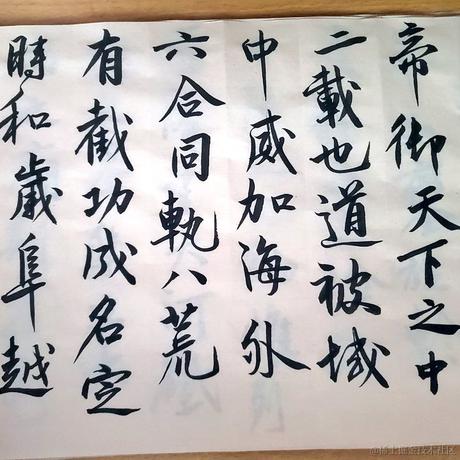 帝御天下之中
二載也道被域
中威加海外
六合同軌八荒
有截功成名定
時和歲阜越
@稀土掘金技术社区